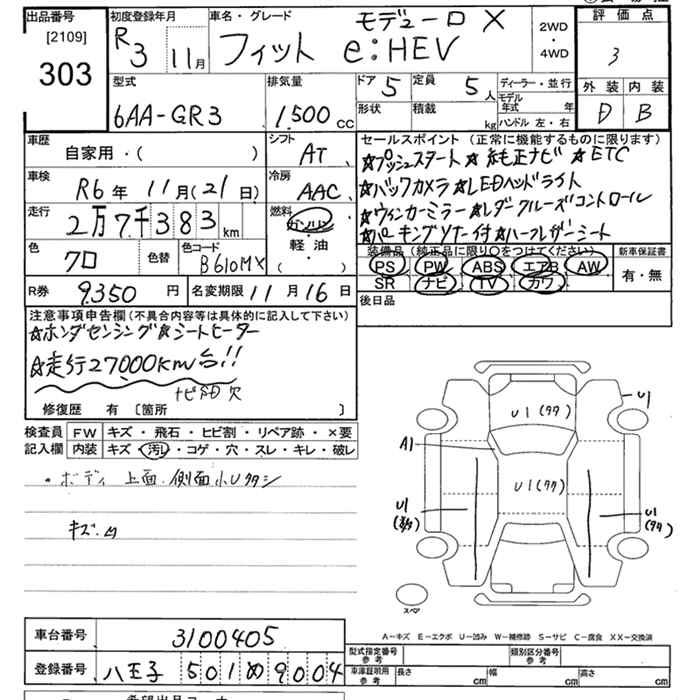 出品番号 初度登録年月 車名・グレード モデューロ X 2WD・4WD 評価点
[2109] R3 11月 フィット e:HEV 3
303
型式 排気量 ドア 5 定員 5人 ディーラー・並行 外装 内装
6AA-GR3 1500 CC 形状 積載 kg モデル年式 年 ハンドル 左・右 D B
車歴 シフト セールスポイント (正常に機能するものに限ります)
自家用・( ) AT ☆プッシュスタート ☆純正ナビ ☆ETC
車検 冷房 ☆バックカメラ ☆LEDヘッドライト
R6年 11月(21日) AAC ☆ウィンカーミラー ☆レダークルーズコントロール
走行 燃料 ☆パーキングソナー付 ☆ハーフレザーシート
2万7千383km ガソリン
色 色替 色コード 軽油 装備品 (純正品に限り○をつけてください) 新車保証書
クロ B610MX ( ) PS PW ABS エアB AW 有・無
SR ナビ TV カワ
R券 9,350円 名変期限 11月16日 後日品
注意事項申告欄(不具合内容等は具体的に記入して下さい)
☆ホンダセンシング ☆シートヒーター
☆走行27000km台!!
ナビSD欠
修復歴 有 [箇所 ]
検査員 FW キズ・飛石・ヒビ割・リペア跡・×要
記入欄 内装 キズ・汚れ・コゲ・穴・スレ・キレ・破レ
・ボディ 上面・側面小Uクタシ
キズ・凹
U1
U1(タタ)
A1
U1(タタ)
U1
U1
(タタ)
スペア
A-キズ E-エクボ U-凹み W-補修跡 S-サビ C-腐食 XX-交換済
車台番号 3100405 型式指定番号 参考 類別区分番号 参考
登録番号 八王子 501 め 9004 車庫証明用 参考 長さ cm 幅 cm 高さ cm